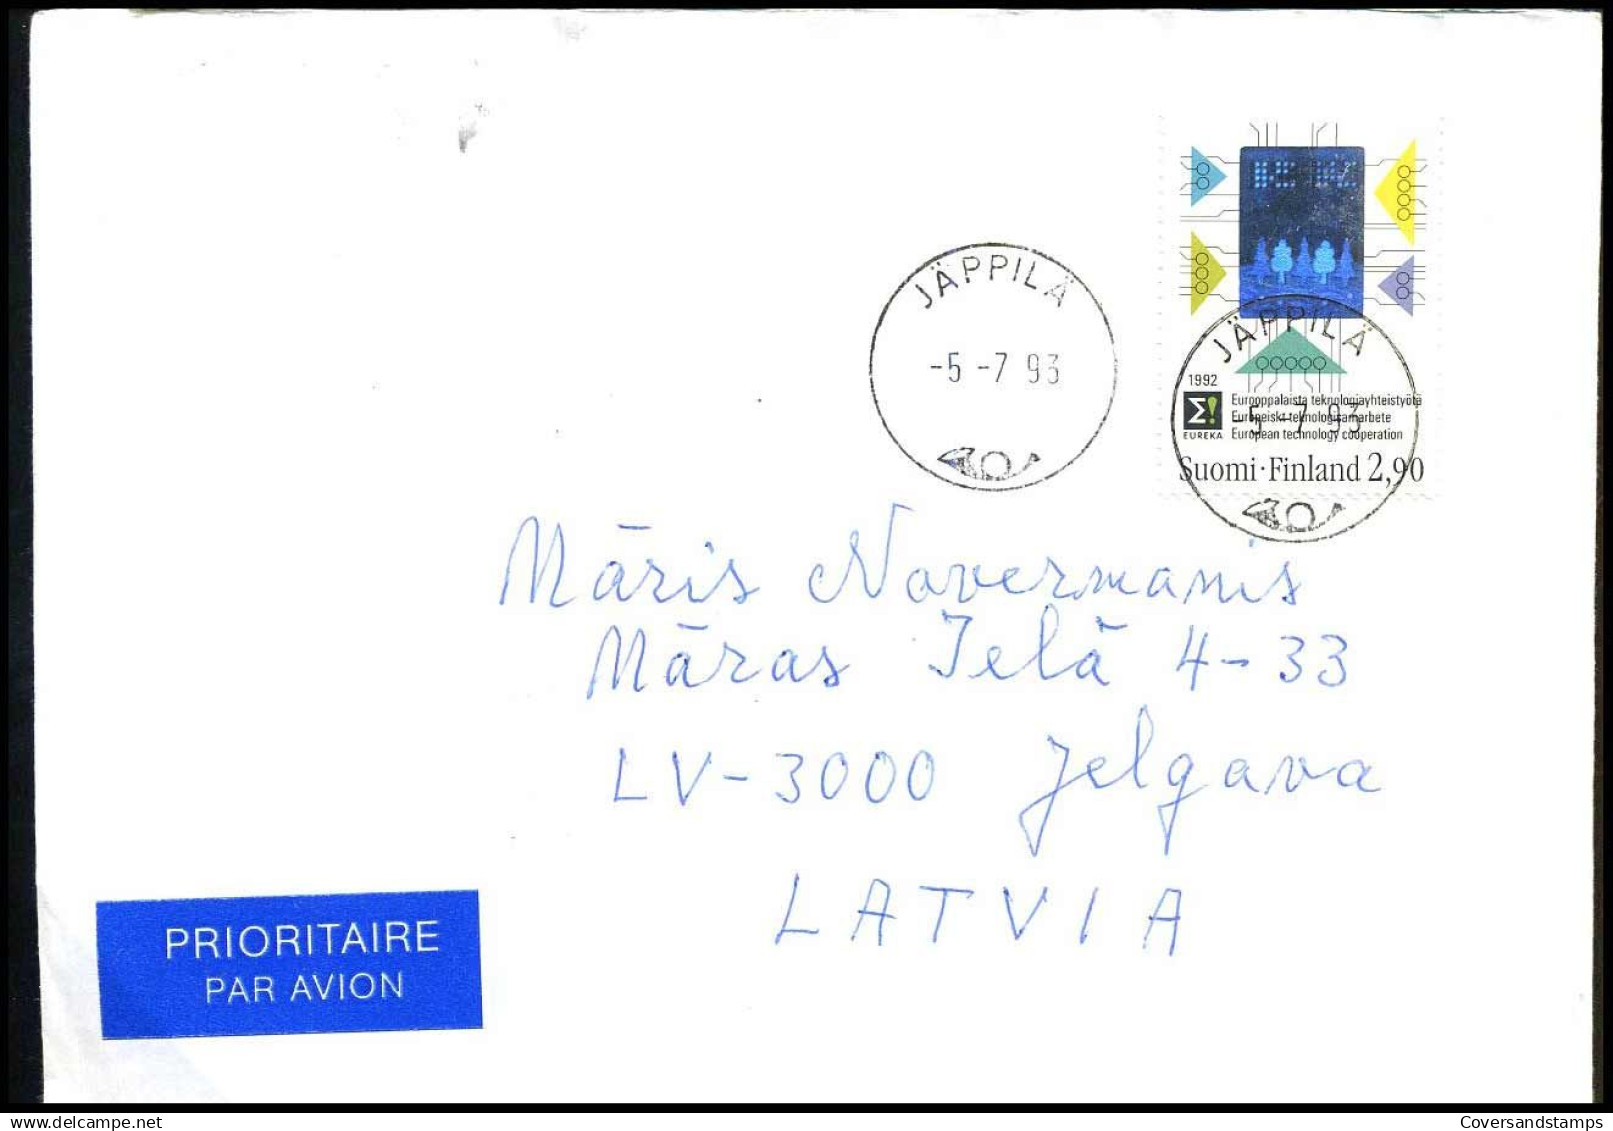 JÄPPILÄ
-5 -7 93
JÄPPILÄ
-5 -7 93
1992
Eurooppalaista teknologiayhteistyötä
Europeiskt teknologisamarbete
EUREKA European technology cooperation
Suomi·Finland 2,90
Māris Novermanis
Māras Ielā 4-33
LV-3000 Jelgava
LATVIA
PRIORITAIRE
PAR AVION
Coversandstamps